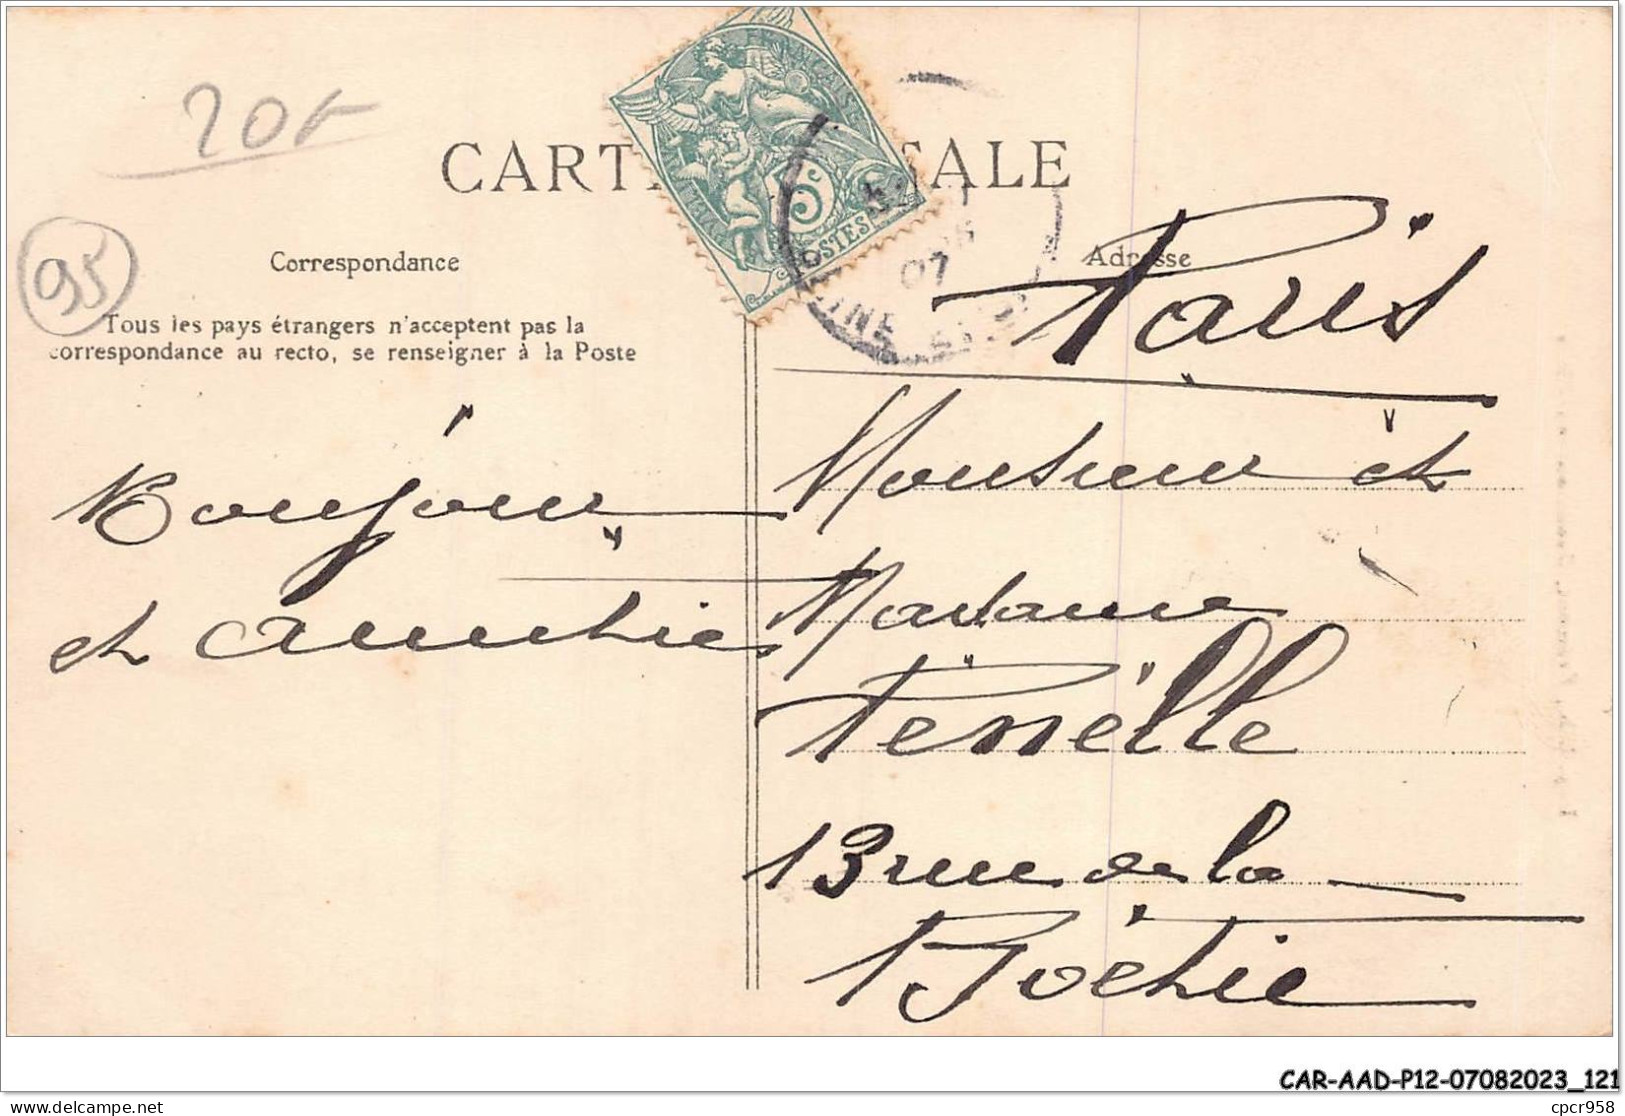 20F
CARTE POSTALE
FRANÇAISE
5c
POSTES
07
95
Correspondance
Adresse
Tous les pays étrangers n'acceptent pas la
correspondance au recto, se renseigner à la Poste
Paris
Bonjour
et amitié
Monsieur et
Madame
Penelle
13 rue de la
Boétie
CAR-AAD-P12-07082023_121
delcampe.net
cpcr958